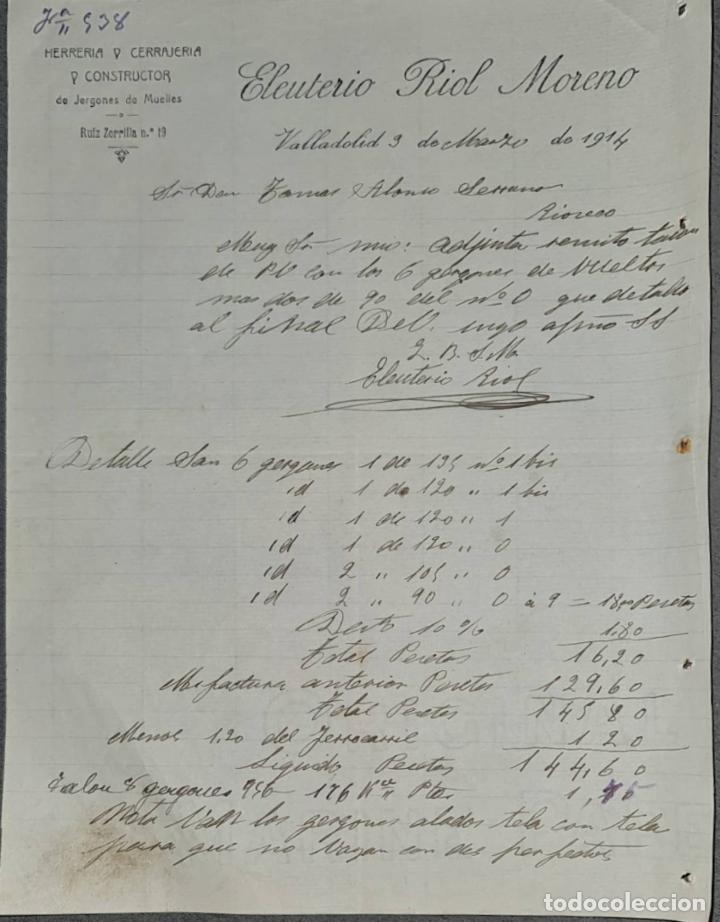 938
HERRERIA Y CERRAJERIA
Y CONSTRUCTOR
de Jergones de Muelles
Ruiz Zorrilla n.º 19
Eleuterio Riol Moreno
Valladolid 9 de Marzo de 1914
Sr Don Tomas Alonso Serrano
Rioseco
Muy Sr mio: adjinta remito talon
de PV con los 6 gergones de vueltos
mas dos de 90 del nº 0 que detallo
al final De V. afmo SS
Q. B. S. M.
Eleuterio Riol
Detalle Son 6 gergones 1 de 135 nº 1 bis
id 1 de 120 " 1 bis
id 1 de 120 " 1
id 1 de 120 " 0
id 2 " 105 " 0
id 2 " 90 " 0 à 9 = 18,00 Pesetas
Desto 10 % 1,80
Total Pesetas 16,20
Mi factura anterior Pesetas 129,60
Total Pesetas 145 80
Menos 1,20 del Ferrocarril 1 20
Liquido Pesetas 144,60
Talon 6 gergones 176 Ptas
Nota Van los gergones atados tela con tela
para que no vayan con des perfectos
todocoleccion
todocoleccion.net